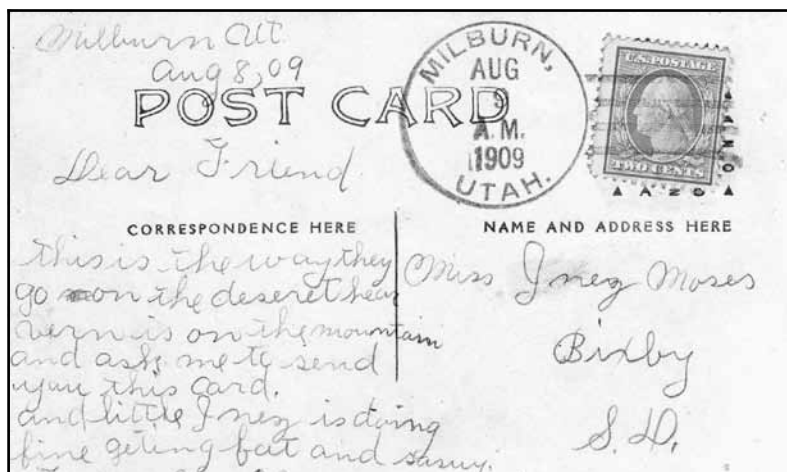 Milburn Ut.
Aug 8, 09
POST CARD
MILBURN,
AUG
9
A.M.
1909
UTAH.
U.S. POSTAGE
TWO CENTS
Dear Friend
CORRESPONDENCE HERE
this is the way they
go on the deseret hear
vern is on the mountain
and ask me to send
you this card.
and little Inez is doing
fine geting fat and sassy.
NAME AND ADDRESS HERE
Miss Inez Moses
Bixby
S.D.